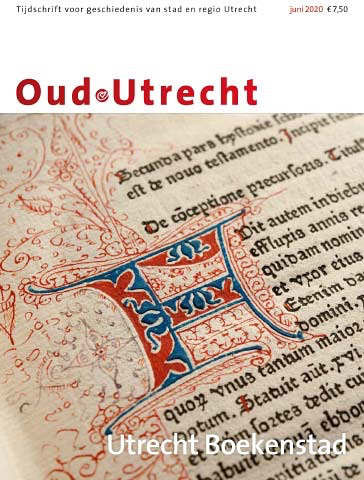 Tijdschrift voor geschiedenis van stad en regio Utrecht
juni 2020 € 7,50
Oud Utrecht
Secunda pars hystorie
Incipit
est de nouo testamento.
De cōceptione precursoris. Titul
Uit autem in diebu
effluxis annis
quidam nomin
et vxor eius
Etenim
dominia
quox vnus tantum maior
ptum. Statuit aut
sortes dedit
Utrecht Boekenstad